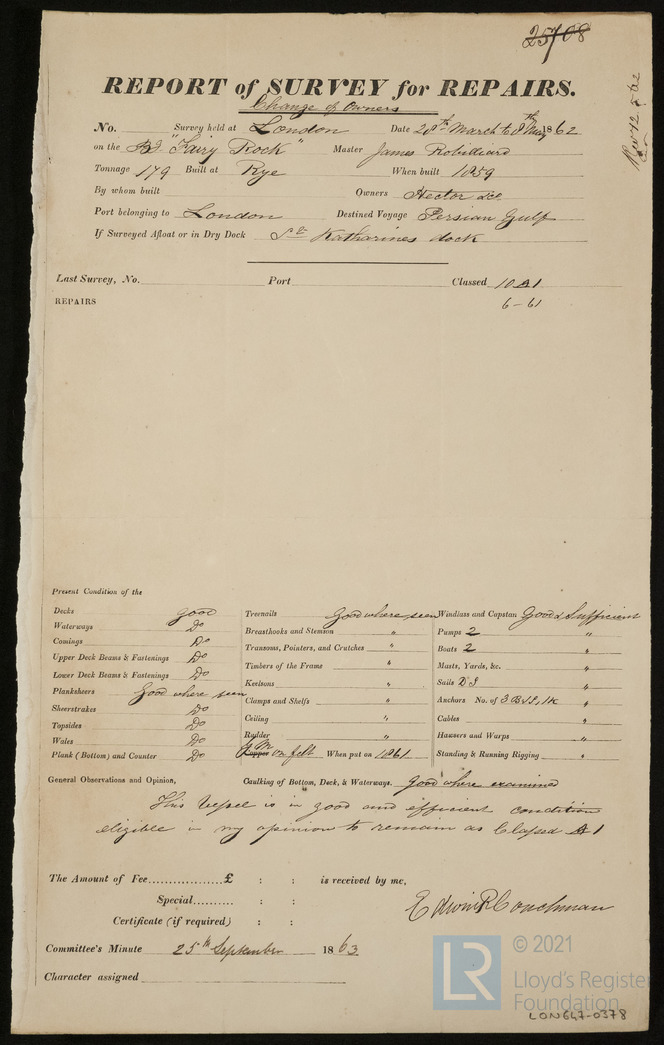 25708
REPORT of SURVEY for REPAIRS.
Change of Owners
No. Survey held at London Date 28th March to 8th May 1862
on the Bg "Fairy Rock" Master James Robilliard
Tonnage 179 Built at Rye When built 1859
By whom built Owners Hector &c
Port belonging to London Destined Voyage Persian Gulf
If Surveyed Afloat or in Dry Dock St Katharines dock
Last Survey, No. Port Classed 10 A1
REPAIRS 6-61
Present Condition of the
Decks good Treenails Good where seen Windlass and Capstan Good & Sufficient
Waterways Do Breasthooks and Stemson " Pumps 2 "
Comings Do Transoms, Pointers, and Crutches " Boats 2 "
Upper Deck Beams & Fastenings Do Timbers of the Frame " Masts, Yards, &c. "
Lower Deck Beams & Fastenings Do Keelsons " Sails "
Planksheers Good where seen Clamps and Shelfs " Anchors No. of 3 B 1 S, 1K "
Sheerstrakes Do Ceiling " Cables "
Topsides Do Rudder " Hawsers and Warps "
Wales Do Copper YM on felt When put on 1861 Standing & Running Rigging "
Plank (Bottom) and Counter Do
General Observations and Opinion, Caulking of Bottom, Deck, & Waterways. Good where examined
This Vessel is in good and efficient condition
eligible in my opinion to remain as Classed A 1
The Amount of Fee..................£ : : is received by me,
Special.......... : :
Edwin R Couchman
Certificate (if required) : :
Committee's Minute 25th September 1863
Character assigned
LR © 2021
Lloyd's Register
Foundation
LON647-0378